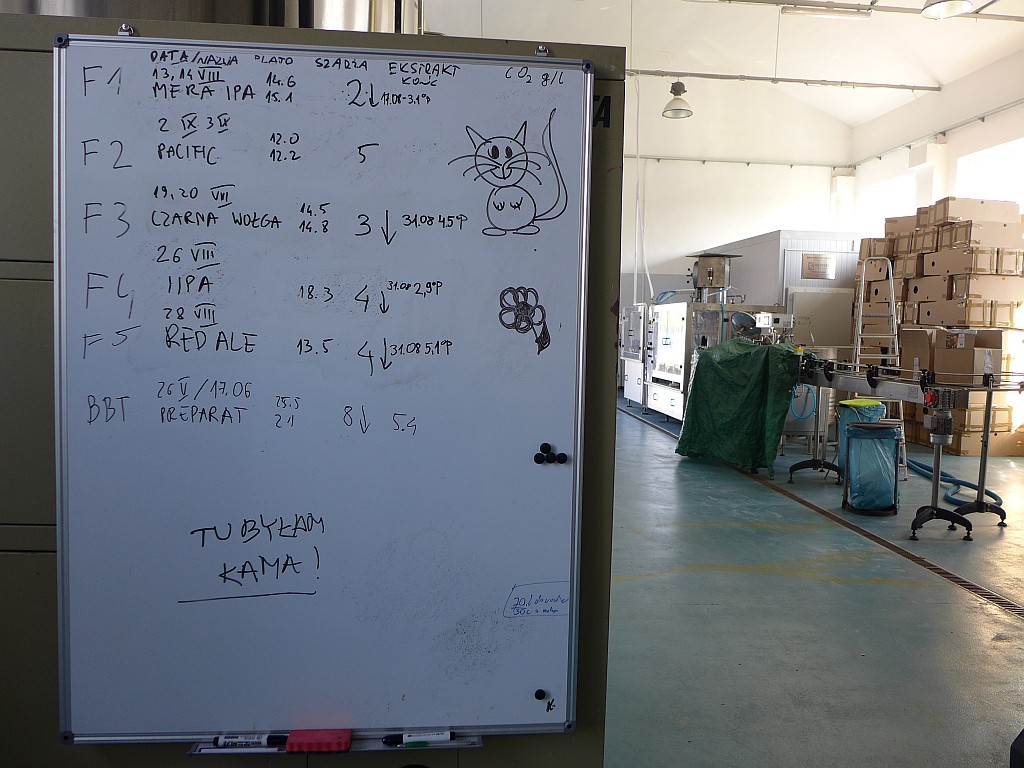 DATA/NAZWA PLATO SZARŻA EKSTRAKT CO2 g/l
KOŃC
F1 13, 14 VIII 14.6
MERA IPA 15.1 2↓ 17.08-3.1°P
2 IX 3 IX 12.0
F2 PACIFIC 12.2 5
19, 20 VIII 14.5
F3 CZARNA WOŁGA 14.8 3↓ 31.08 4.5°P
26 VIII
F4 IIPA 18.3 4↓ 31.08 2,9°P
28 VIII
F5 RED ALE 13.5 4↓ 31.08 5,1°P
26 V / 17.06 25.5
BBT PREPARAT 21 8↓ 5.4
TU BYŁAM
KAMA!